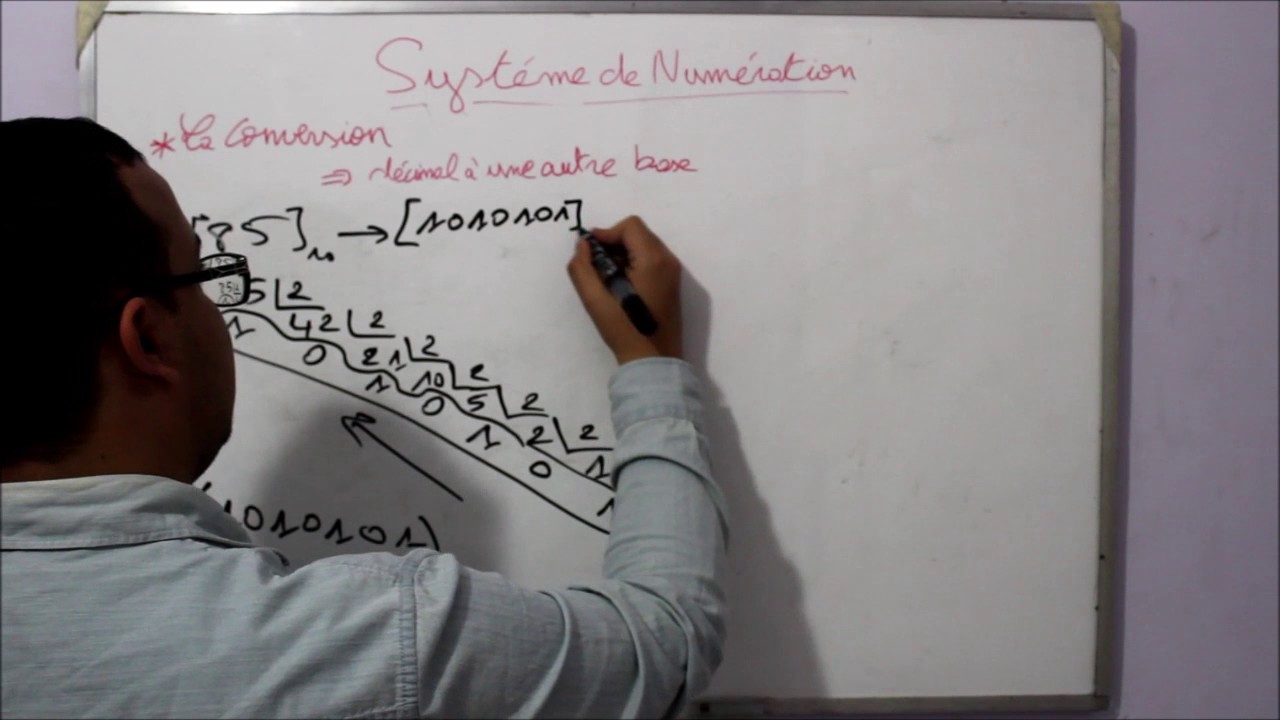 Systéme de Numération
* La conversion
⇒ décimal à une autre base
[85]10 → [1010101]
5 2
1 42 2
0 21 2
1 10 2
0 5 2
1 2 2
0 1
1
(1010101)